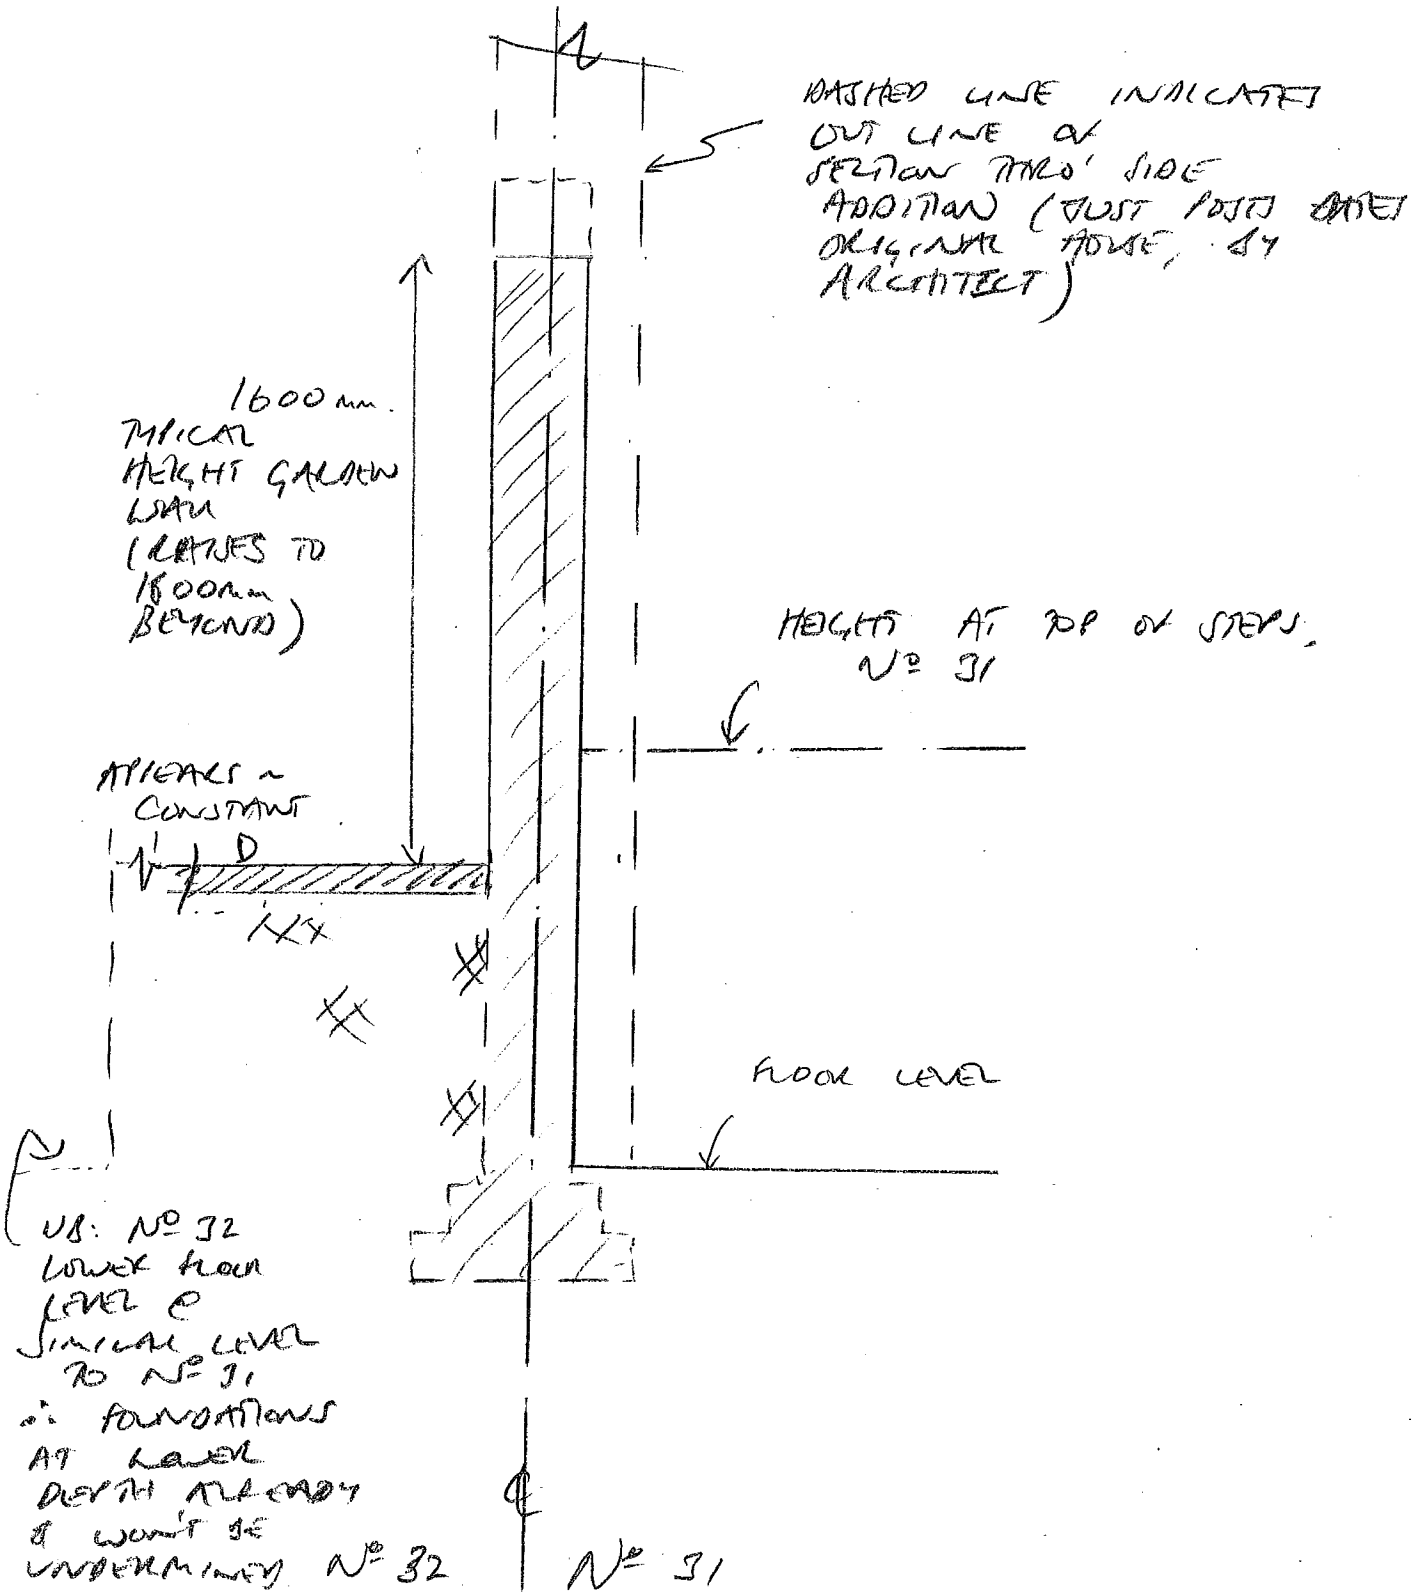 DASHED LINE INDICATES
OUT LINE OF
SECTION THRO' SIDE
ADDITION (JUST POSTS DATES
ORIGINAL HOUSE, BY
ARCHITECT)
1600mm.
TYPICAL
HEIGHT GARDEN
WALL
(RAISES TO
1800mm
BEYOND)
HEIGHT AT TOP OF STEPS.
Nº 31
APPEARS ~
CONSTANT
D
FLOOR LEVEL
NB: Nº 32
LOWER FLOOR
LEVEL @
SIMILAR LEVEL
TO Nº 31
∴ FOUNDATIONS
AT LOWER
DEPTH ALREADY
& WON'T BE
UNDERMINED
Nº 32
Nº 31